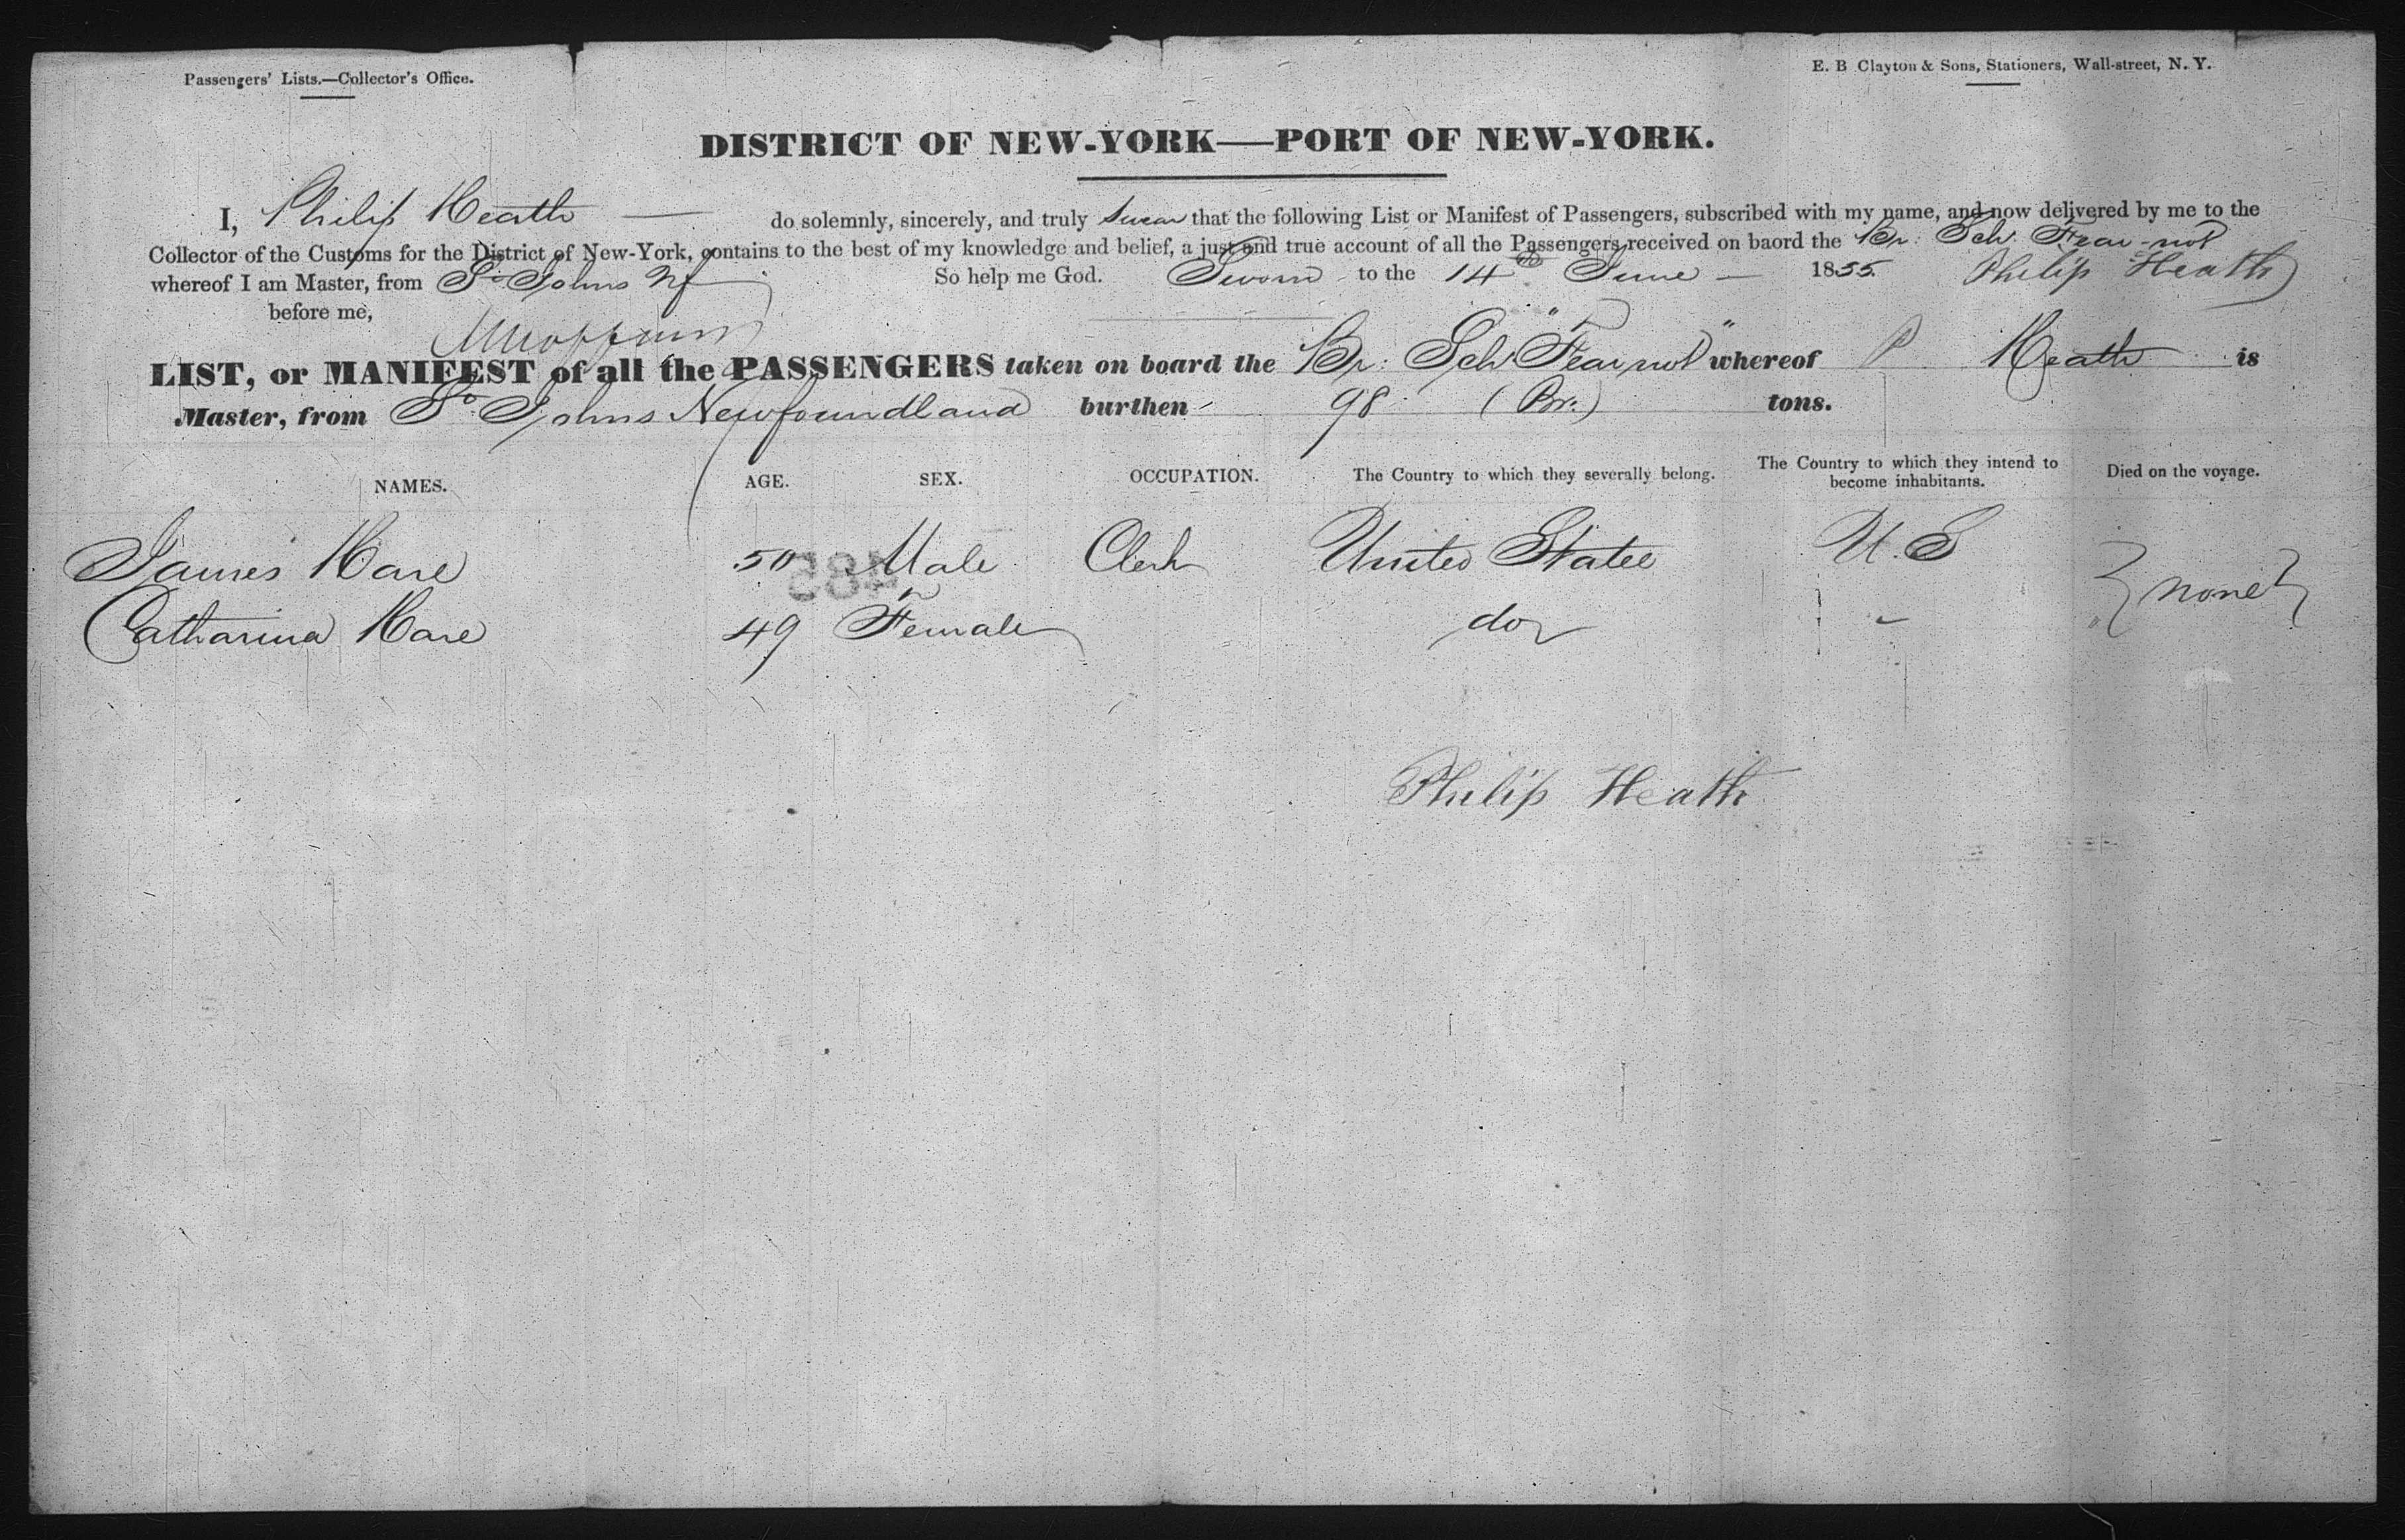 Passengers' Lists.—Collector's Office.
E. B Clayton & Sons, Stationers, Wall-street, N. Y.
DISTRICT OF NEW-YORK—PORT OF NEW-YORK.
I, Philip Heath do solemnly, sincerely, and truly swear that the following List or Manifest of Passengers, subscribed with my name, and now delivered by me to the
Collector of the Customs for the District of New-York, contains to the best of my knowledge and belief, a just and true account of all the Passengers received on baord the Br. Sch. Fear-not
whereof I am Master, from St. Johns Nf So help me God. Sworn to the 14th June 1855. Philip Heath
before me,
LIST, or MANIFEST of all the PASSENGERS taken on board the Br: Sch. "Fearnot" whereof P Heath is
Master, from St. Johns Newfoundland burthen 98 (Br.) tons.
NAMES. AGE. SEX. OCCUPATION. The Country to which they severally belong. The Country to which they intend to become inhabitants. Died on the voyage.
James Hare 50 Male Clerk United States U. S
Catharina Hare 49 Female do " none
485
Philip Heath